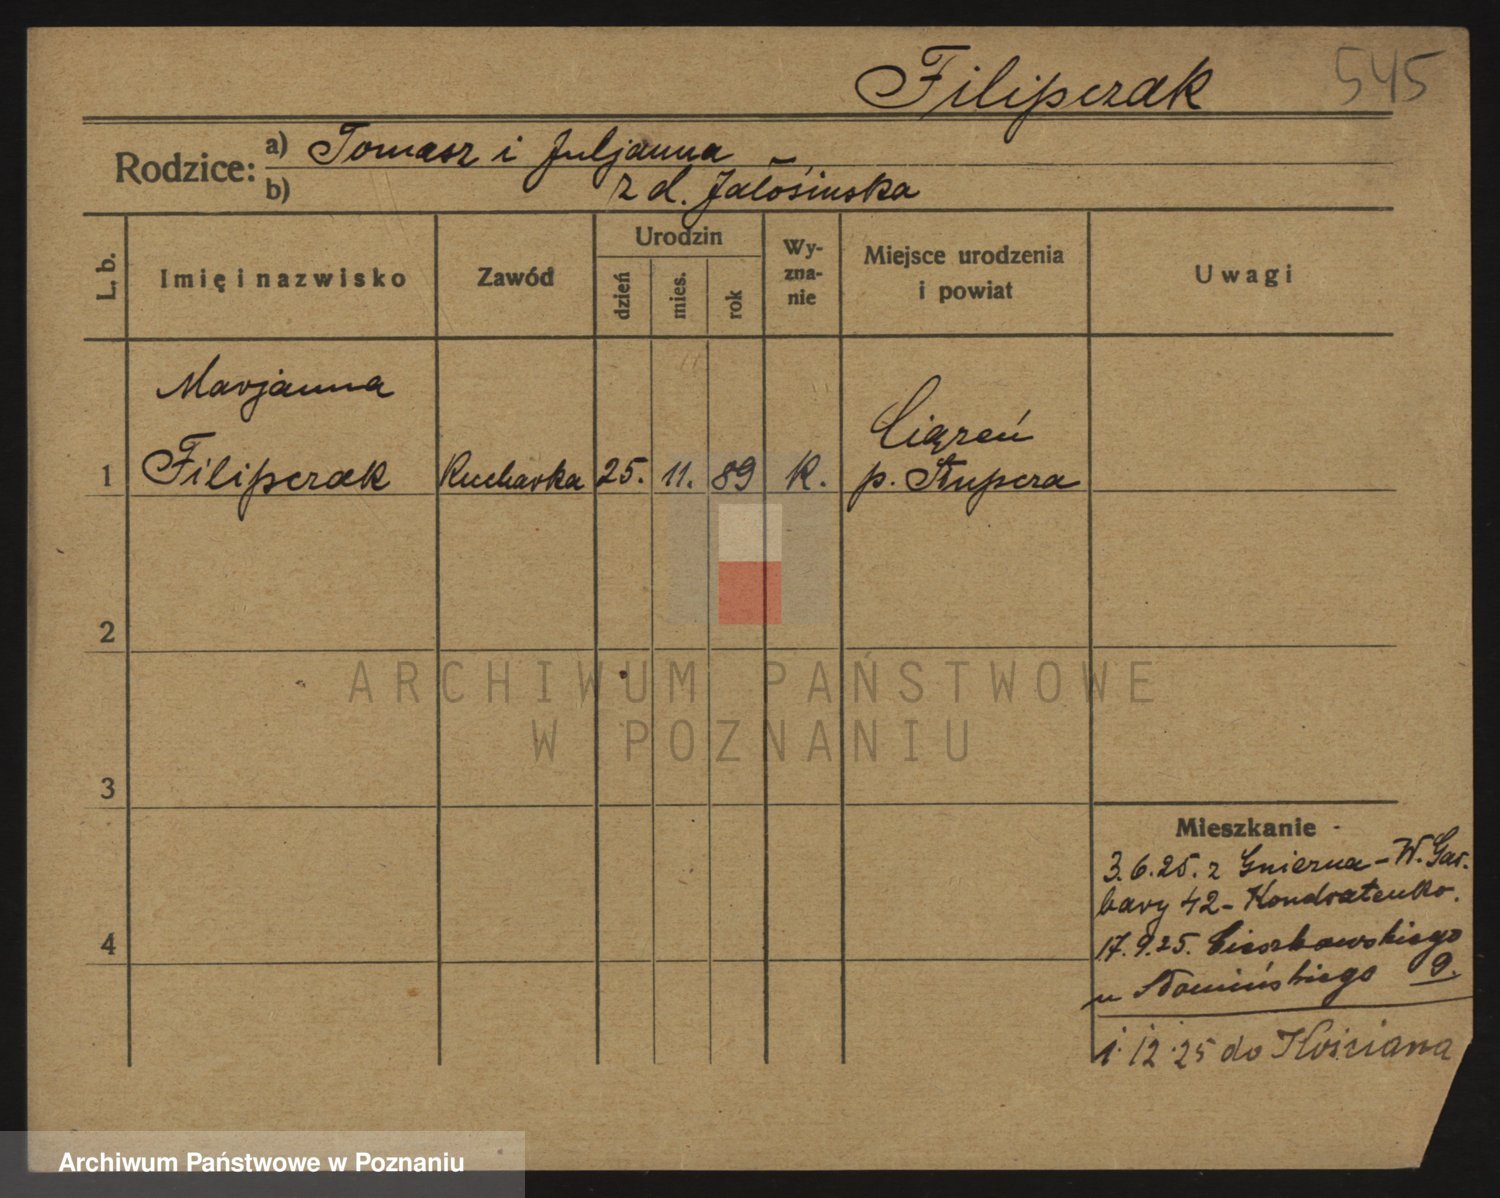 Filipczak 545
Rodzice: a) Tomasz i Juljanna
b) z d. Jałosińska
L. b. Imię i nazwisko Zawód Urodzin dzień mies. rok Wy-
zna-
nie Miejsce urodzenia
i powiat Uwagi
Marjanna
1 Filipczak Kucharka 25. 11. 89 K. Ciążeń
p. Słupcza
2
3
4
Mieszkanie
3.6.25. z Gniezna - W. Gar.
bary 42 - Kondratenko.
17.9.25. Cieszkowskiego
u Słomińskiego 9.
1.12.25 do Kościana
ARCHIWUM PAŃSTWOWE
W POZNANIU
Archiwum Państwowe w Poznaniu